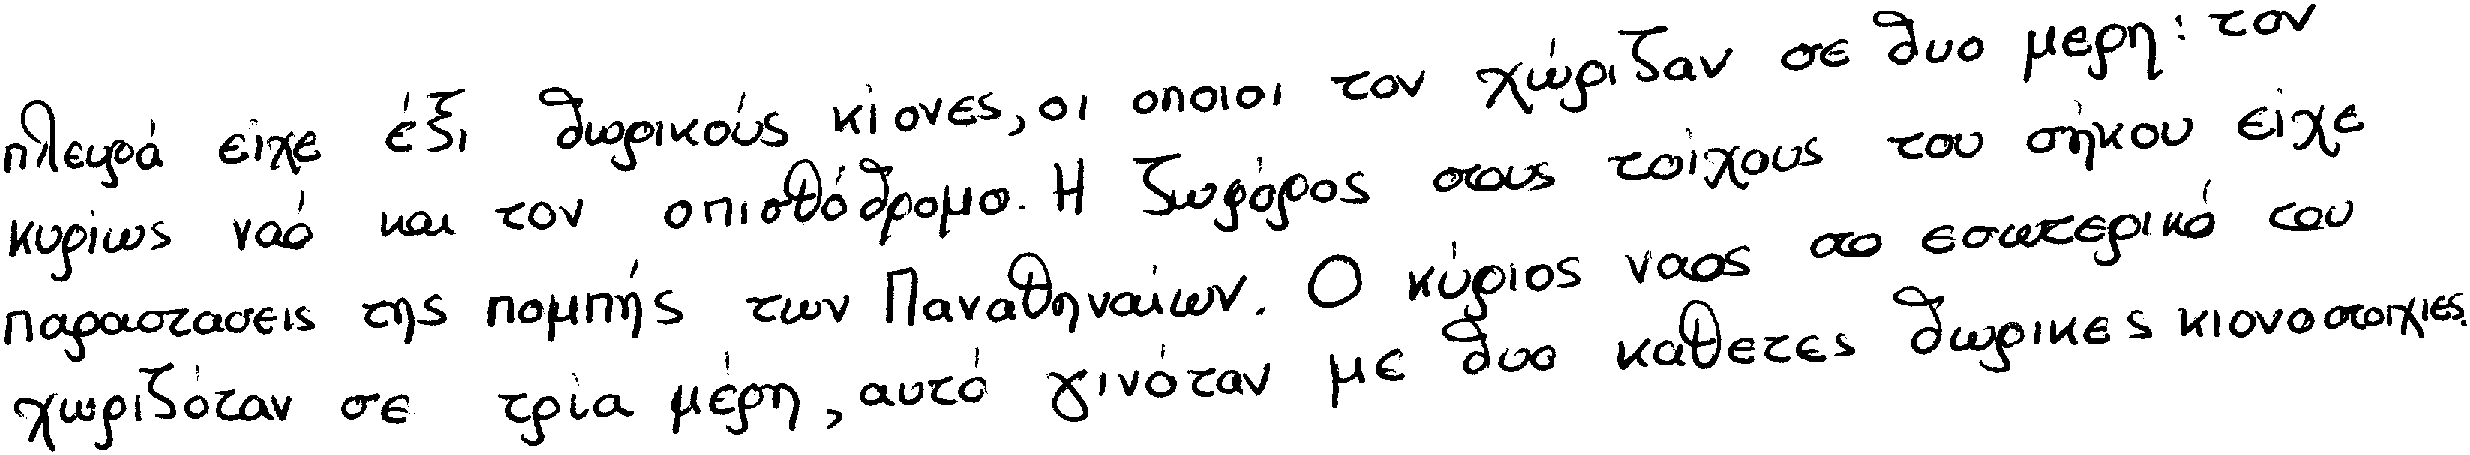 πλευρά είχε έξι δωρικούς κίονες, οι οποιοι τον χώριζαν σε δυο μερη: τον
κυρίως ναό και τον οπισθόδρομο. Η ζωφόρος στους τοίχους του σήκου είχε
παραστασεις της πομπής των Παναθηναίων. Ο κύριος ναος στο εσωτερικό του
χωριζόταν σε τρία μέρη, αυτό γινόταν με δυο καθετες δωρικες κιονοστοιχιες.